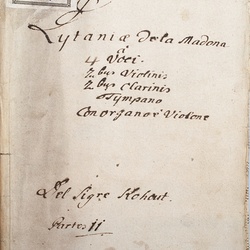 Lytaniæ de la Madona
a
4 Voci.
2bus Violinis
2bus Clarinis
Tympano
Con organo è Violone
Del Sigre Kohaut.
Partes 11